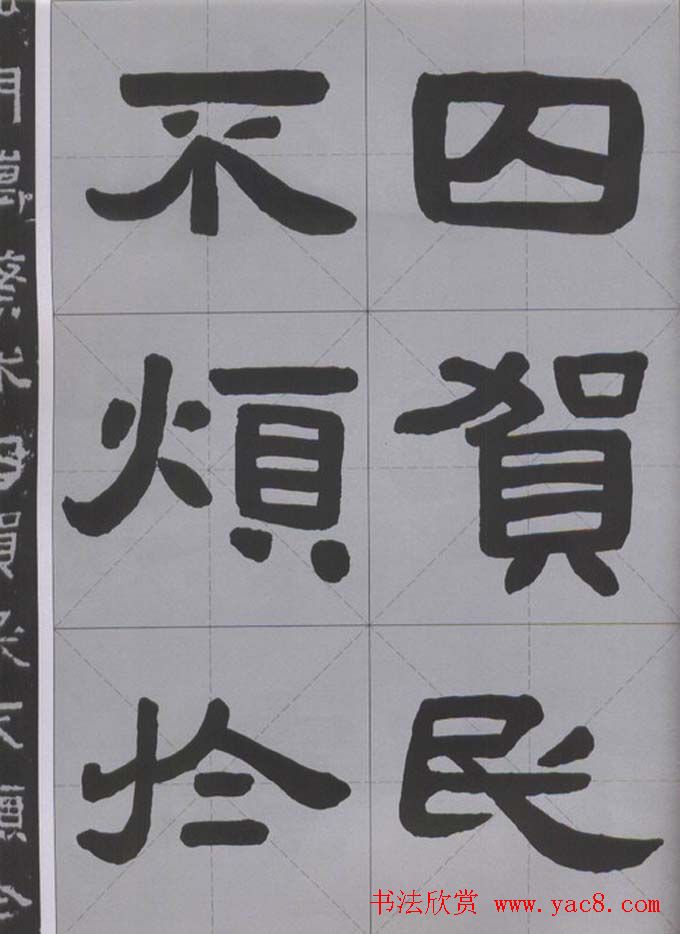 囚賀民
不煩於
书法欣赏 www.yac8.com